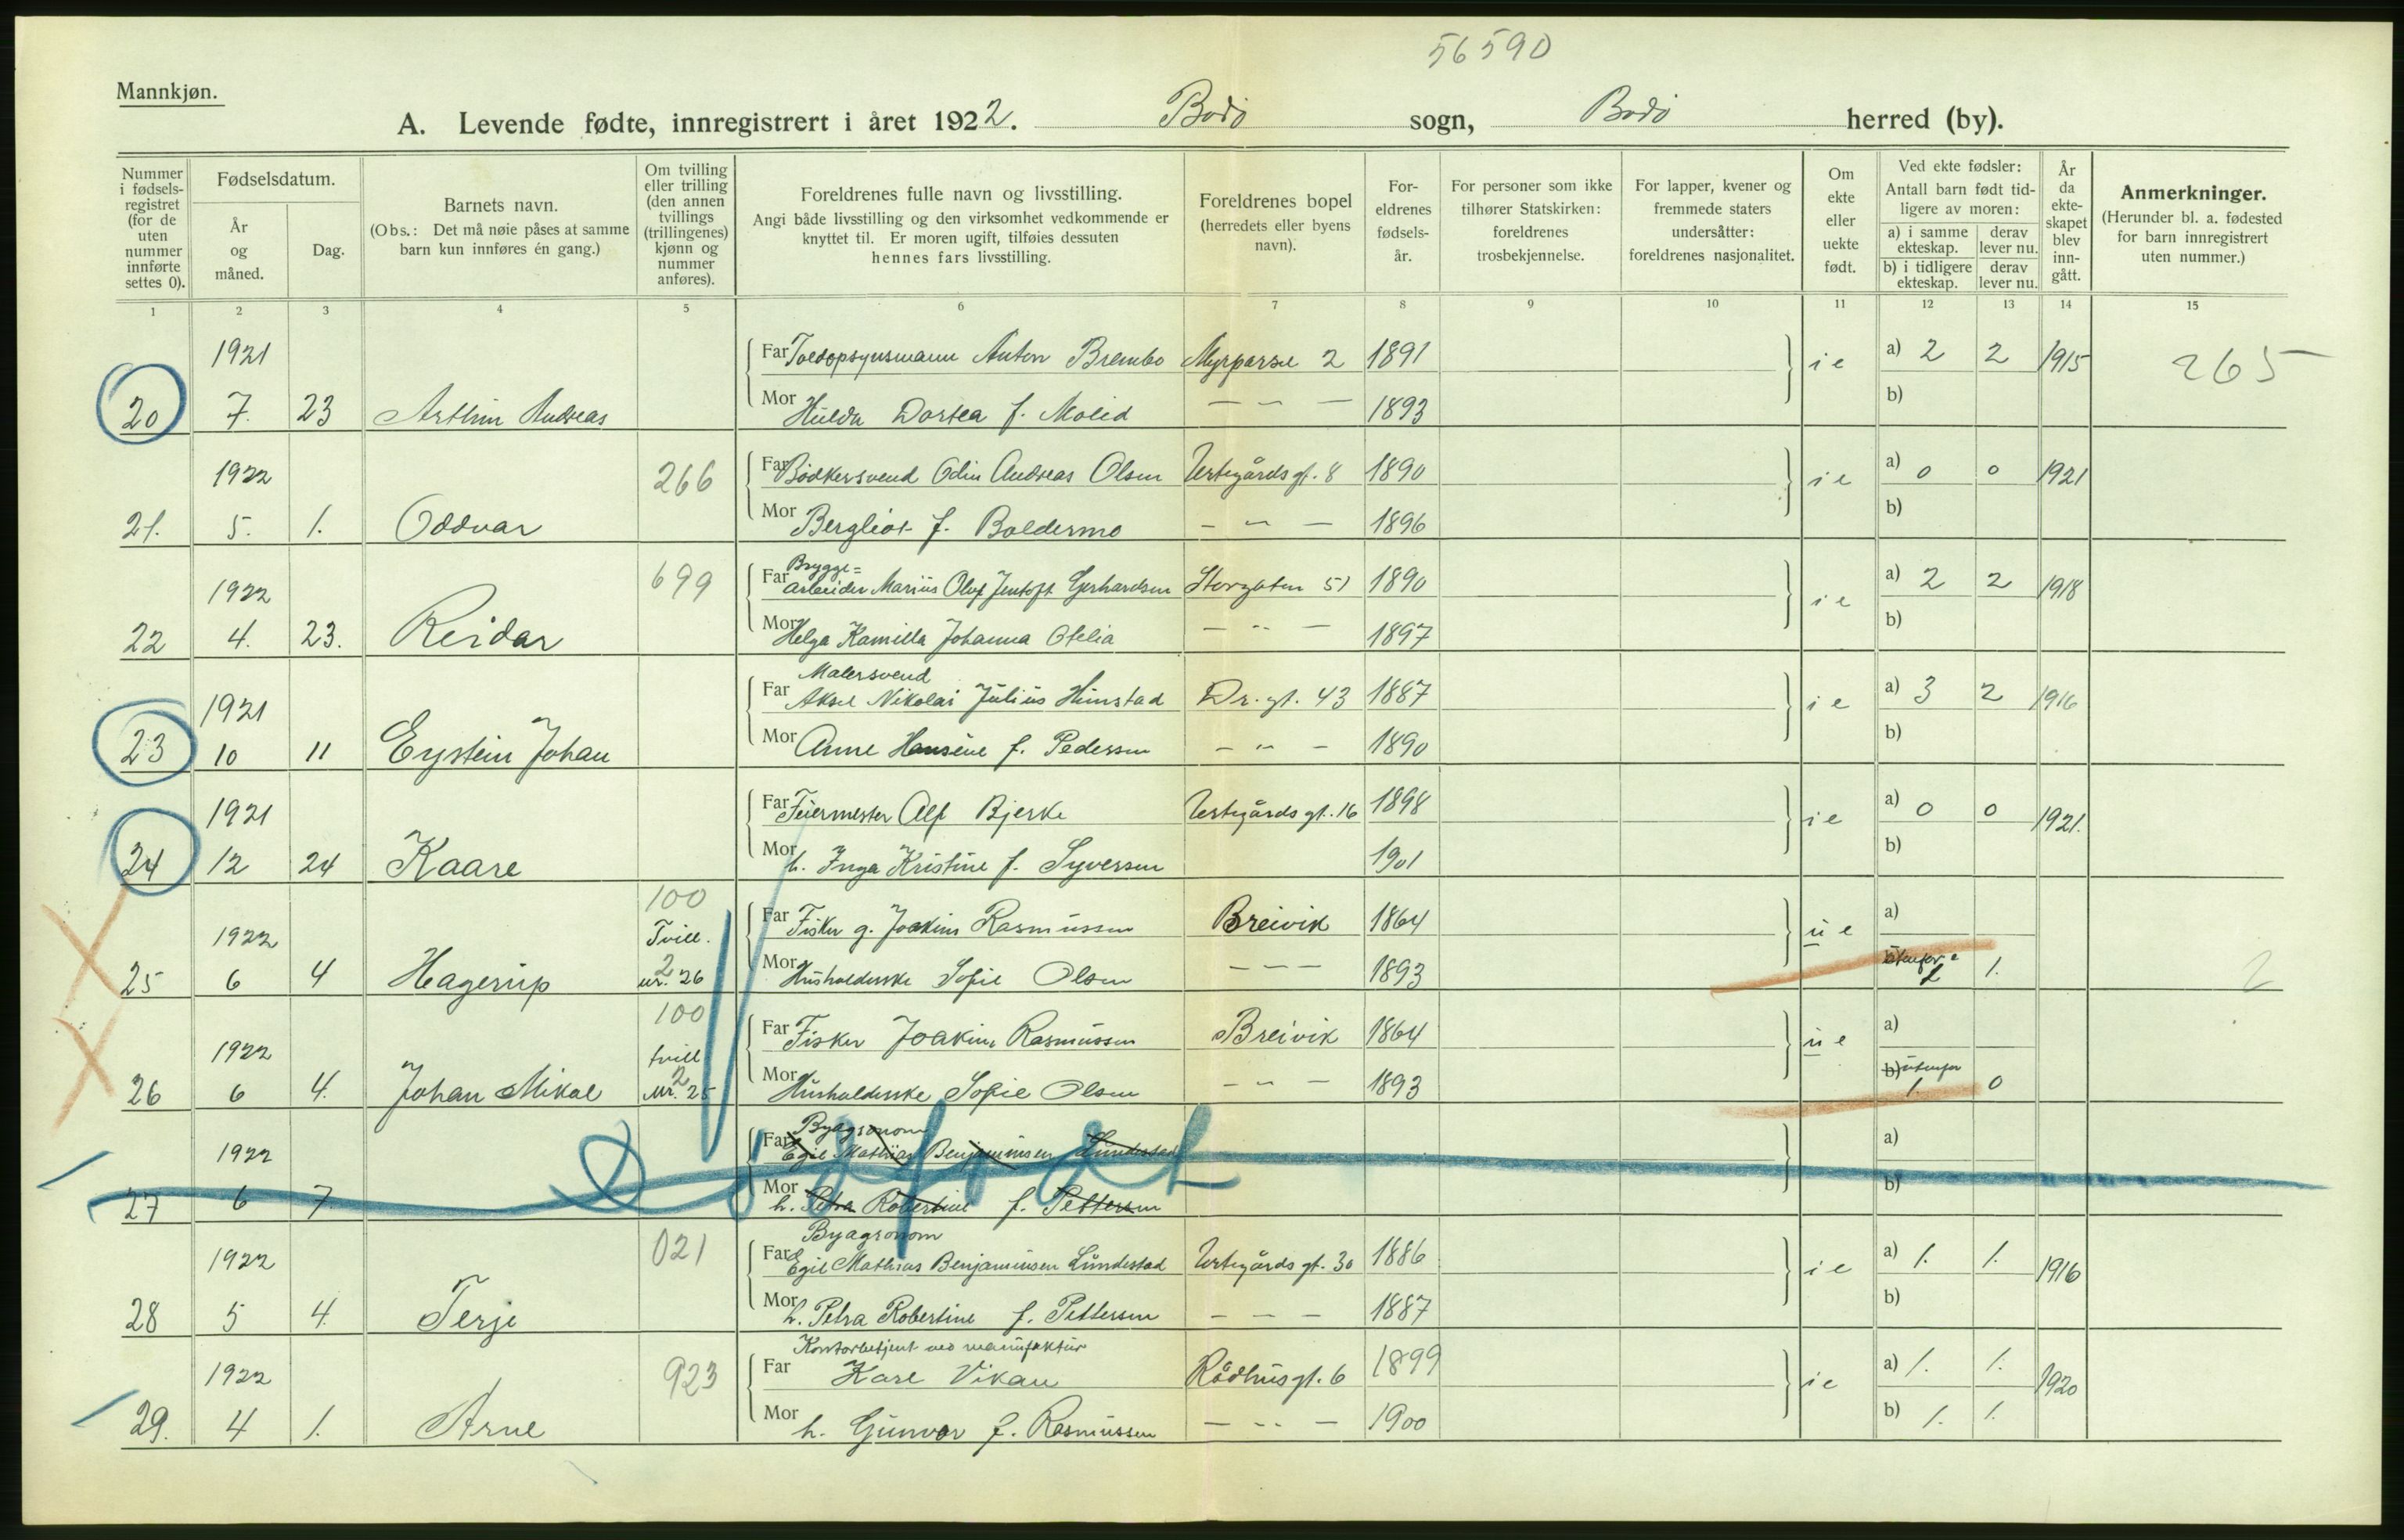 56590
Mannkjøn.
A. Levende fødte, innregistrert i året 1922. Bodø sogn, Bodø herred (by).
Nummer i fødsels-registret (for de uten nummer innførte settes 0).
Fødselsdatum.
År og måned.
Dag.
Barnets navn.
(Obs.: Det må nøie påses at samme barn kun innføres én gang.)
Om tvilling eller trilling (den annen tvillings (trillingenes) kjønn og nummer anføres).
Foreldrenes fulle navn og livsstilling.
Angi både livsstilling og den virksomhet vedkommende er knyttet til. Er moren ugift, tilføies dessuten hennes fars livsstilling.
Foreldrenes bopel (herredets eller byens navn).
For-eldrenes fødsels-år.
For personer som ikke tilhører Statskirken: foreldrenes trosbekjennelse.
For lapper, kvener og fremmede staters undersåtter: foreldrenes nasjonalitet.
Om ekte eller uekte født.
Ved ekte fødsler:
Antall barn født tid-ligere av moren:
a) i samme ekteskap. derav lever nu.
b) i tidligere ekteskap. derav lever nu.
År da ekte-skapet blev inn-gått.
Anmerkninger.
(Herunder bl. a. fødested for barn innregistrert uten nummer.)
1 2 3 4 5 6 7 8 9 10 11 12 13 14 15
1921 Far Toldopsynsmann Anton Brembo 2 1891 i e a) 2 2 1915 265
20 7. 23 Andreas Mor Hulda Dortea f. Molid — — — 1893 b)
1922 266 Far Bødkersvend Odin Andreas Olsen Vertigårds gt. 8 1890 i e a) 0 0 1921
21. 5. 1. Oddvar Mor Bergliot f. Boldermo — " — 1896 b)
1922 699 Far Brygge=
arbeider Marius Oluf Jentoft Gerhardsen Storgaten 51 1890 i e a) 2 2 1918
22 4. 23. Reidar Mor Helga Kamilla Johanna Ofelia — " — 1897 b)
Malersvend
1921 Far Aksel Nikolai Julius Himstad Dr. gt. 43 1887 i e a) 3 2 1916
23 10 11 Eystein Johan Mor Anne Hansine f. Pedersen — " — 1890 b)
1921 Far Feiermester Alf Bjerke Vertigårds gt. 16 1898 i e a) 0 0 1921.
24 12 24 Kaare Mor h. Inga Kristine f. Syversen 1901 b)
100
1922 Tvill. Far Fisker g. Joakim Rasmussen Breivik 1864 u e a)
25 6 4 Hagerup 2 nr. 26 Mor Husholderske Sofie Olsen — — — 1893 utenfor 1. 2
100
1922 tvill Far Fisker Joakim Rasmussen Breivik 1864 u e a)
26 6 4. Johan Mikal 2 nr. 25 Mor Husholderske Sofie Olsen — " — 1893 b) utenfor 1. 0
Byagronom
1922 Far Egil Mathias Benjaminsen Lundestad a)
27 6 7 Mor h. Petra Robertine f. Pettersen b)
Byagronom
1922 021 Far Egil Mathias Benjaminsen Lundestad Vertigårds gt. 30 1886 i e a) 1. 1. 1916
28 5 4. Terje Mor h. Petra Robertine f. Pettersen — — — 1887 b)
Kontorbetjent ved manufaktur
1922 923 Far Kare Vikan Rådhusgt. 6 1899 i e a) 1. 1. 1920
29. 4 1. Arne Mor h. Gunvor f. Rasmussen — " — 1900 b) 1. 1.